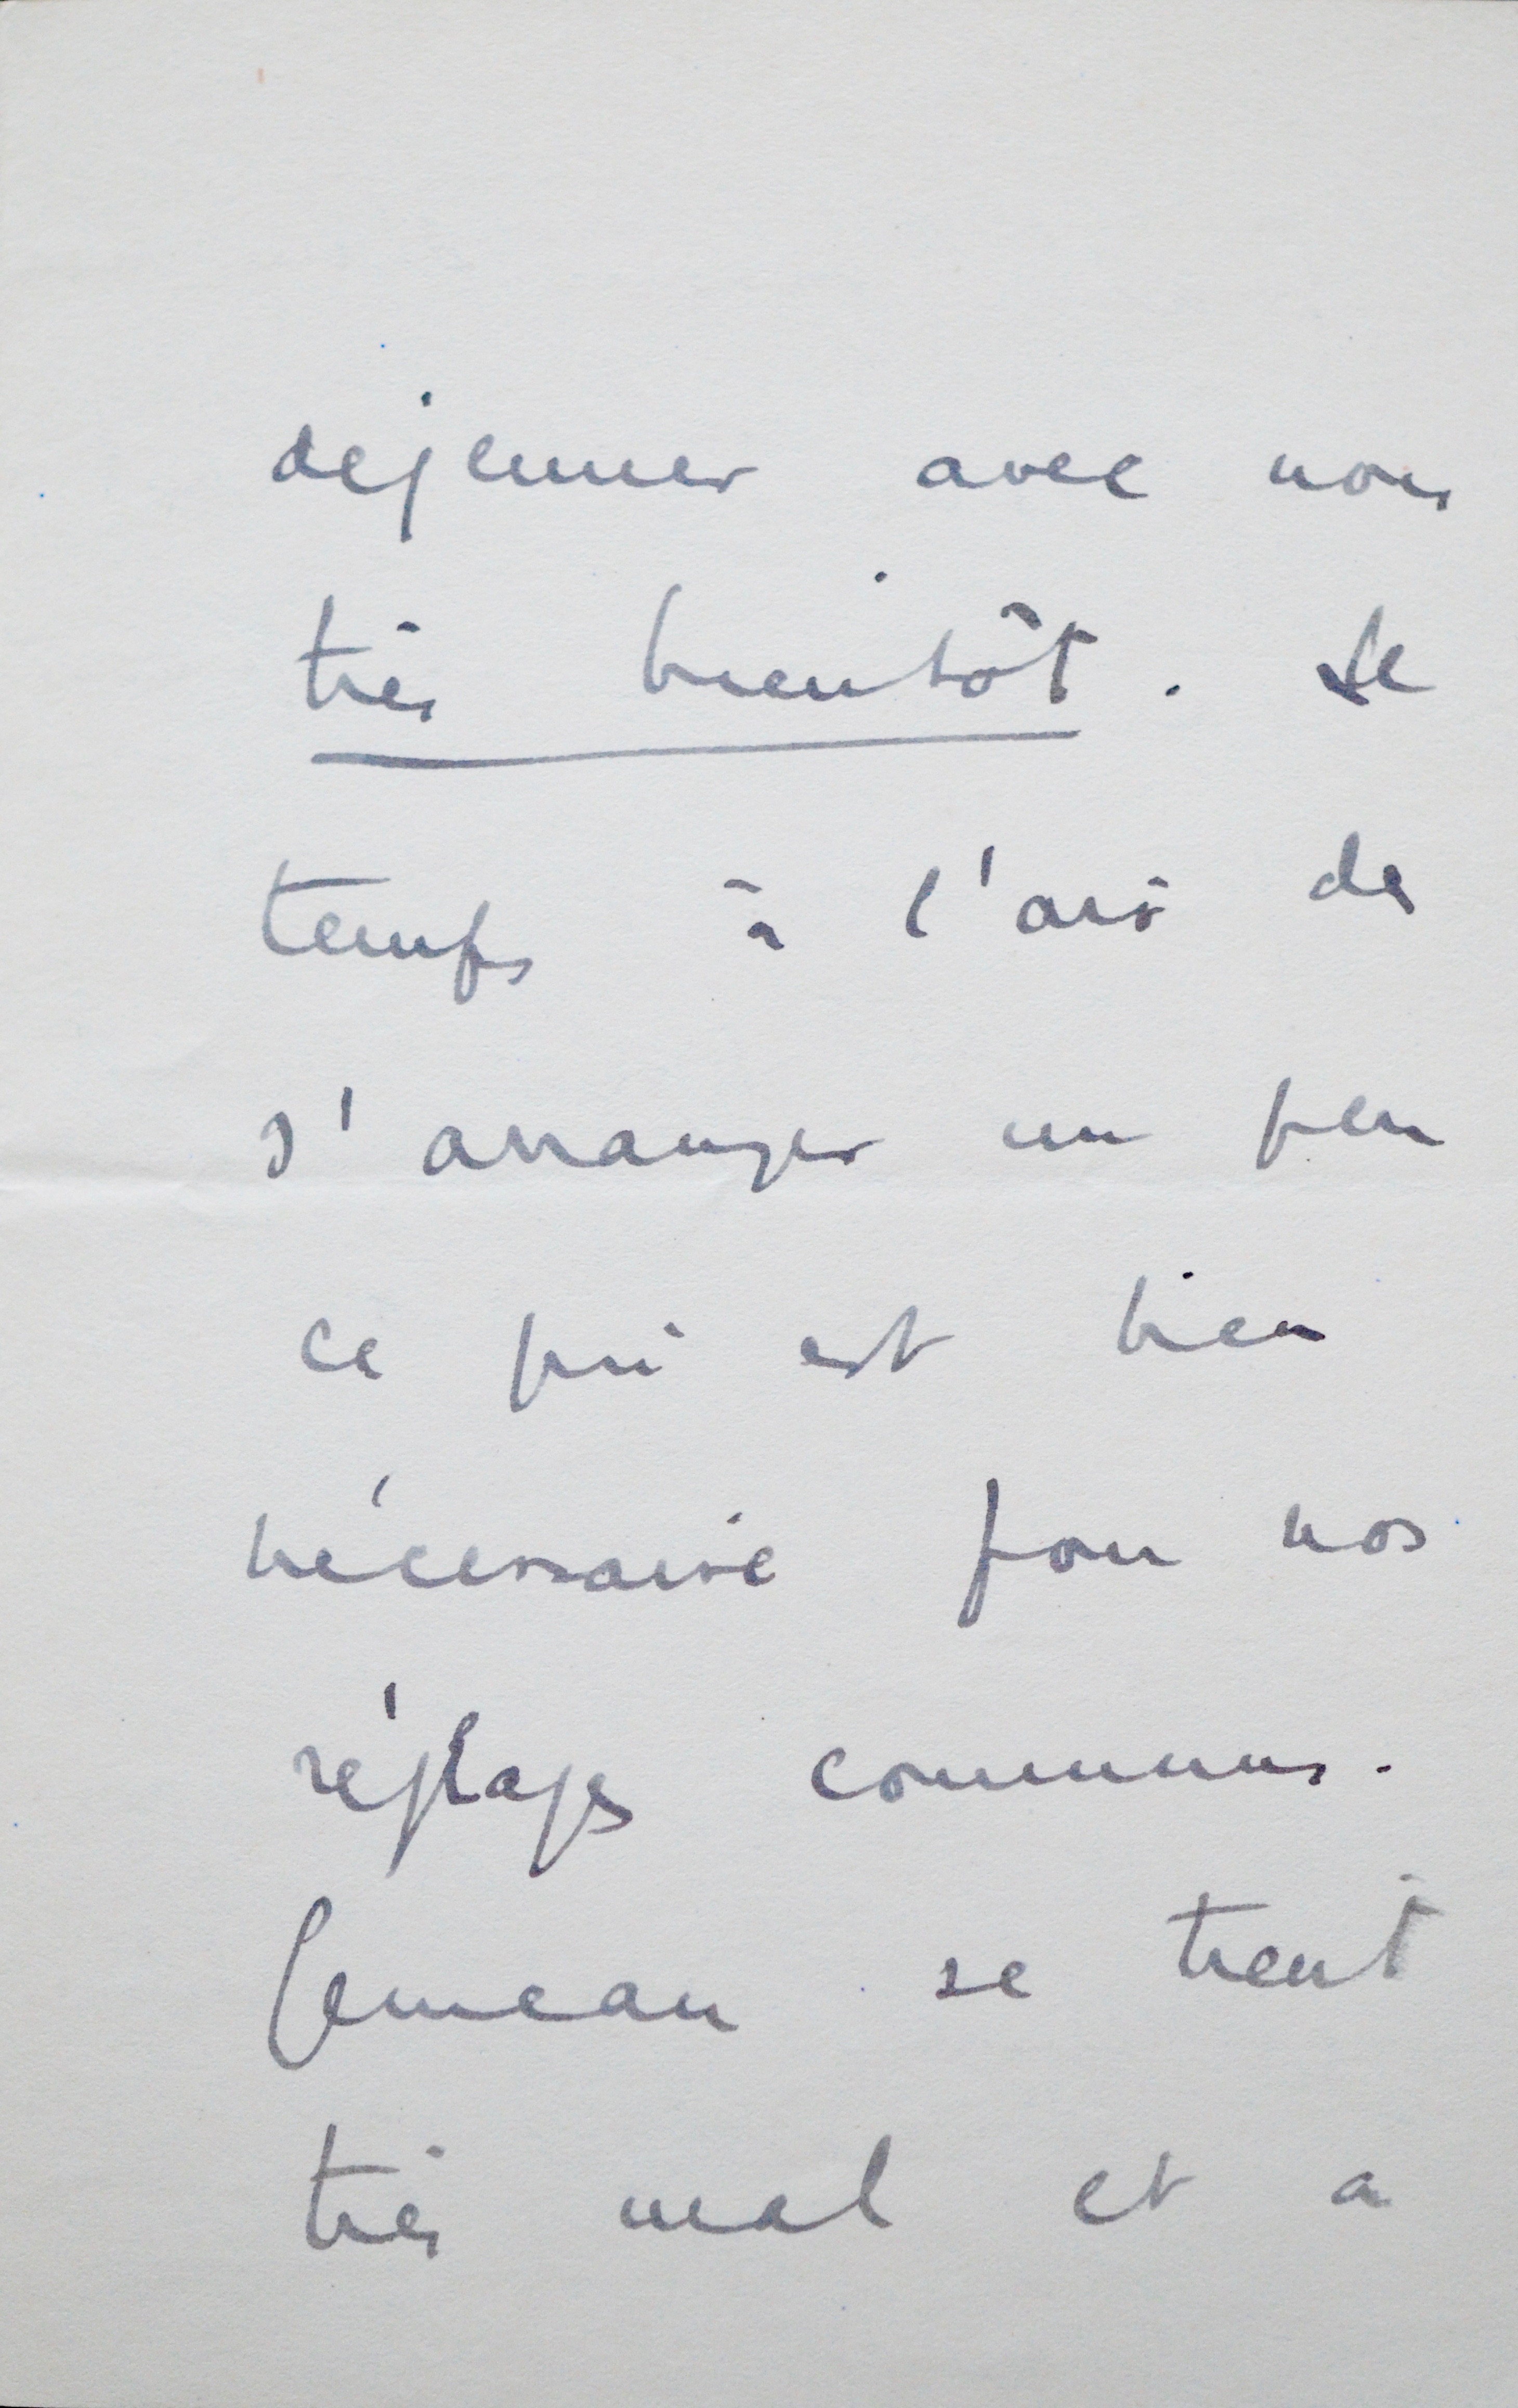 dejeuner avec nous
très bientôt. Le
temps à l'air de
s'arranger un peu
ce qui est bien
nécessaire pour nos
réglages communs.
se tient
très mal et a